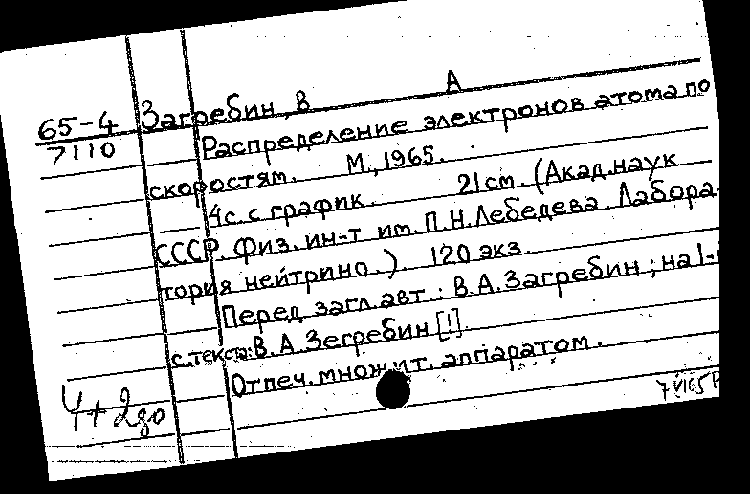 65-4
7110
Загребин, В А
Распределение электронов атома по
скоростям. М., 1965.
4с. с график. 21 см. (Акад. наук
СССР. Физ. ин-т им. П.Н. Лебедева. Лабора-
тория нейтрино.) 120 экз.
Перед загл. авт.: В.А. Загребин; на 1-й
с. текста: В.А. Зегребин [!].
Отпеч. множит. аппаратом.